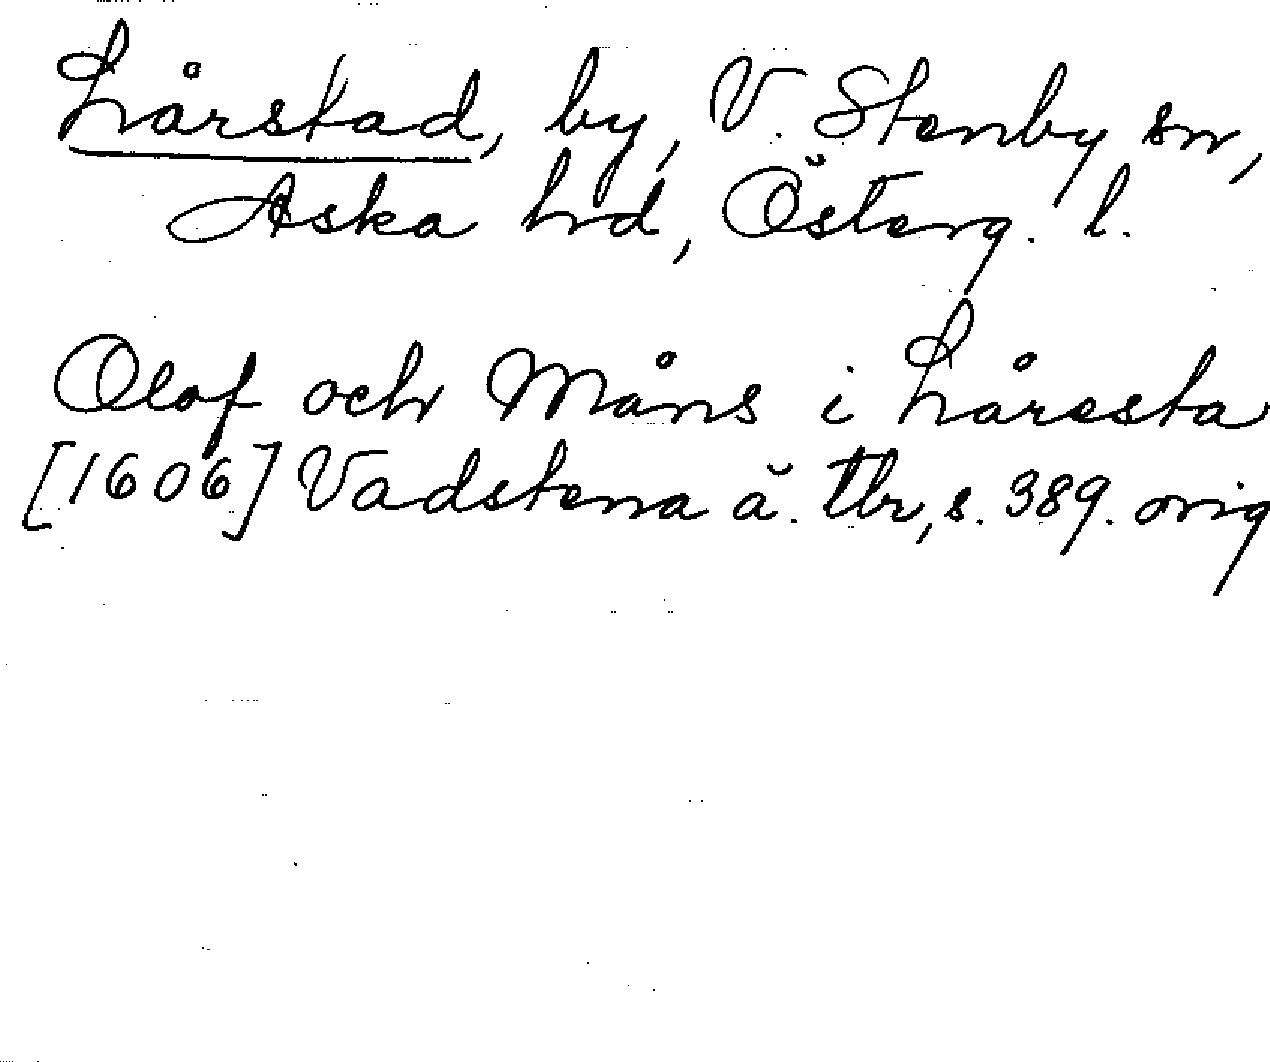 Lårstad, by, V. Stenby sn,
Aska hd, Österg. l.
Olof och Måns i Låresta
[1606] Vadstena ä. tbr, s. 389. orig